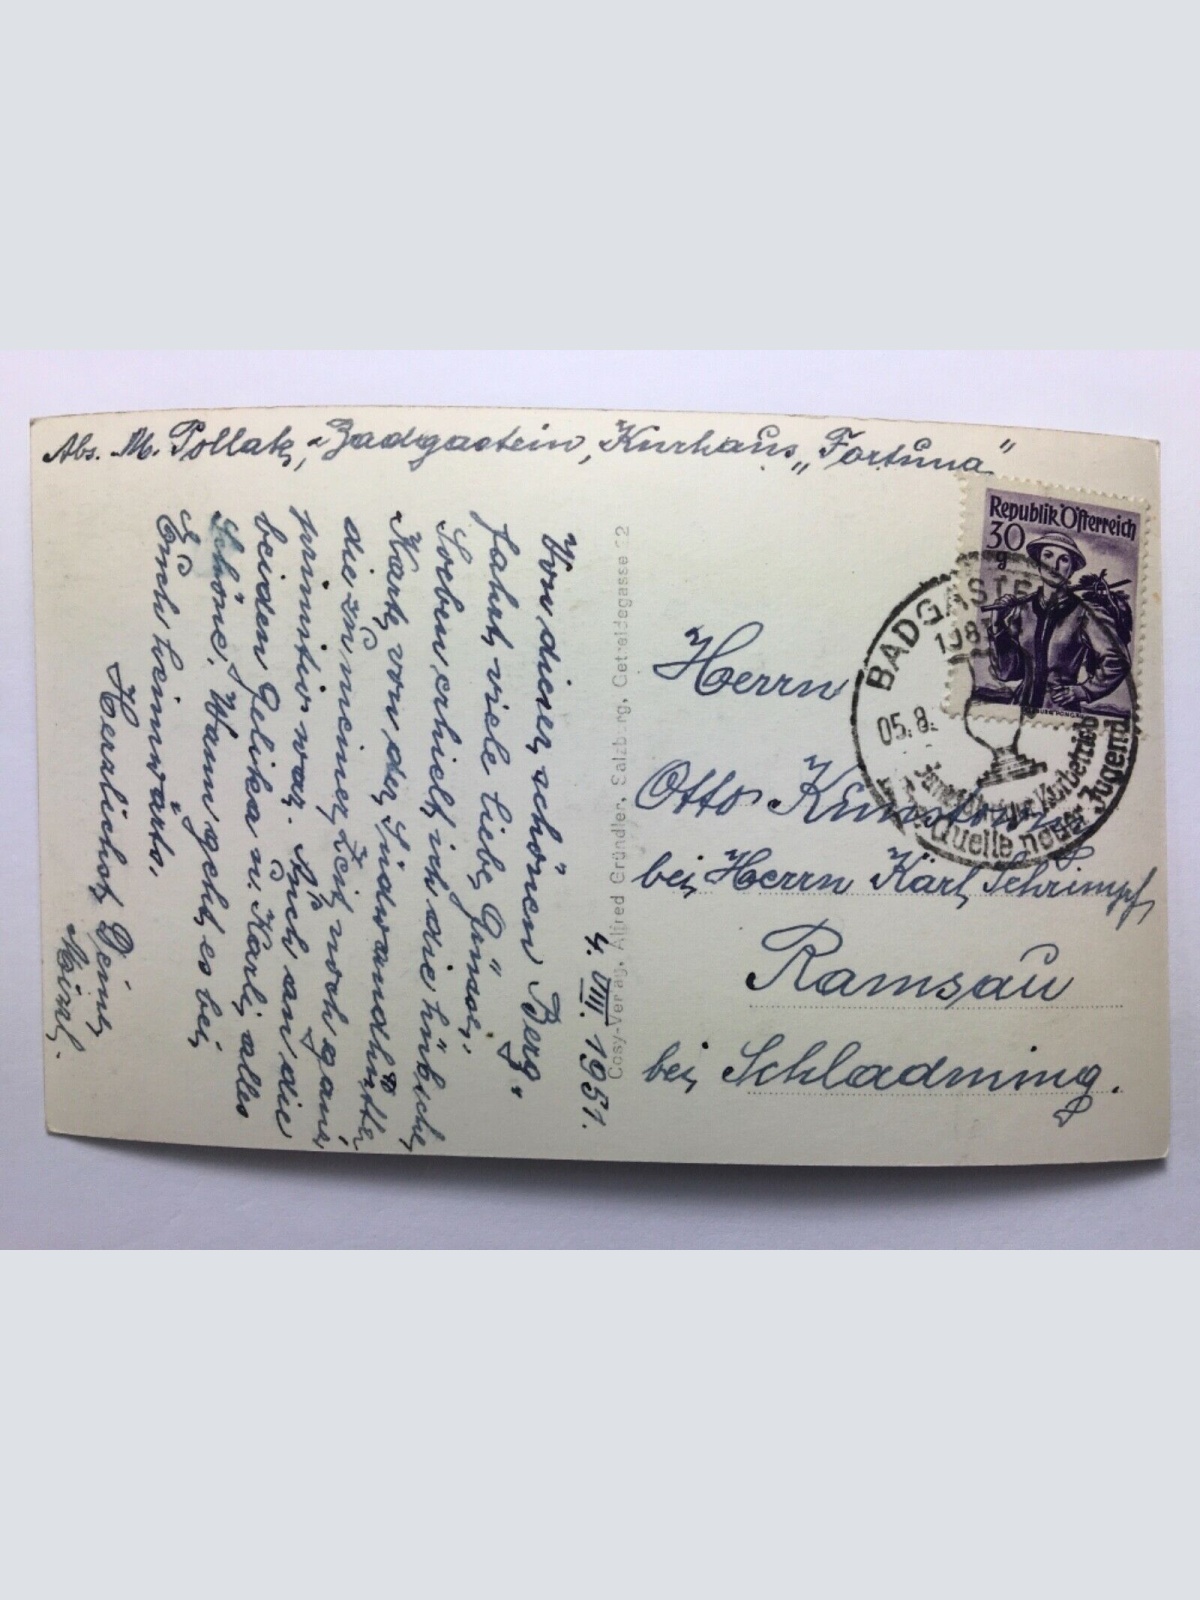 Abs. M. Pollak, Badgastein, Kurhaus „Fortuna"
4. VIII. 1951.
Von dieser schönen Berg-
fahrt viele liebe Grüße!
Soeben erhielt ich die hübsche
Karte von der Südwandhütte
die zu meiner Zeit noch ganz
primitiv war. Auch an die
beiden u. Karli alles
Schöne! Wann geht es bei
Euch heimwärts.
Herzlichst Deine
Mizzi.
Cosy-Verlag, Alfred Gründler, Salzburg, Getreidegasse 22
Republik Österreich
30 g
BADGASTEIN
05.8.
Quelle neuer Jugend
Herrn
Otto
bei Herrn Karl Schrimpf
Ramsau
bei Schladming.